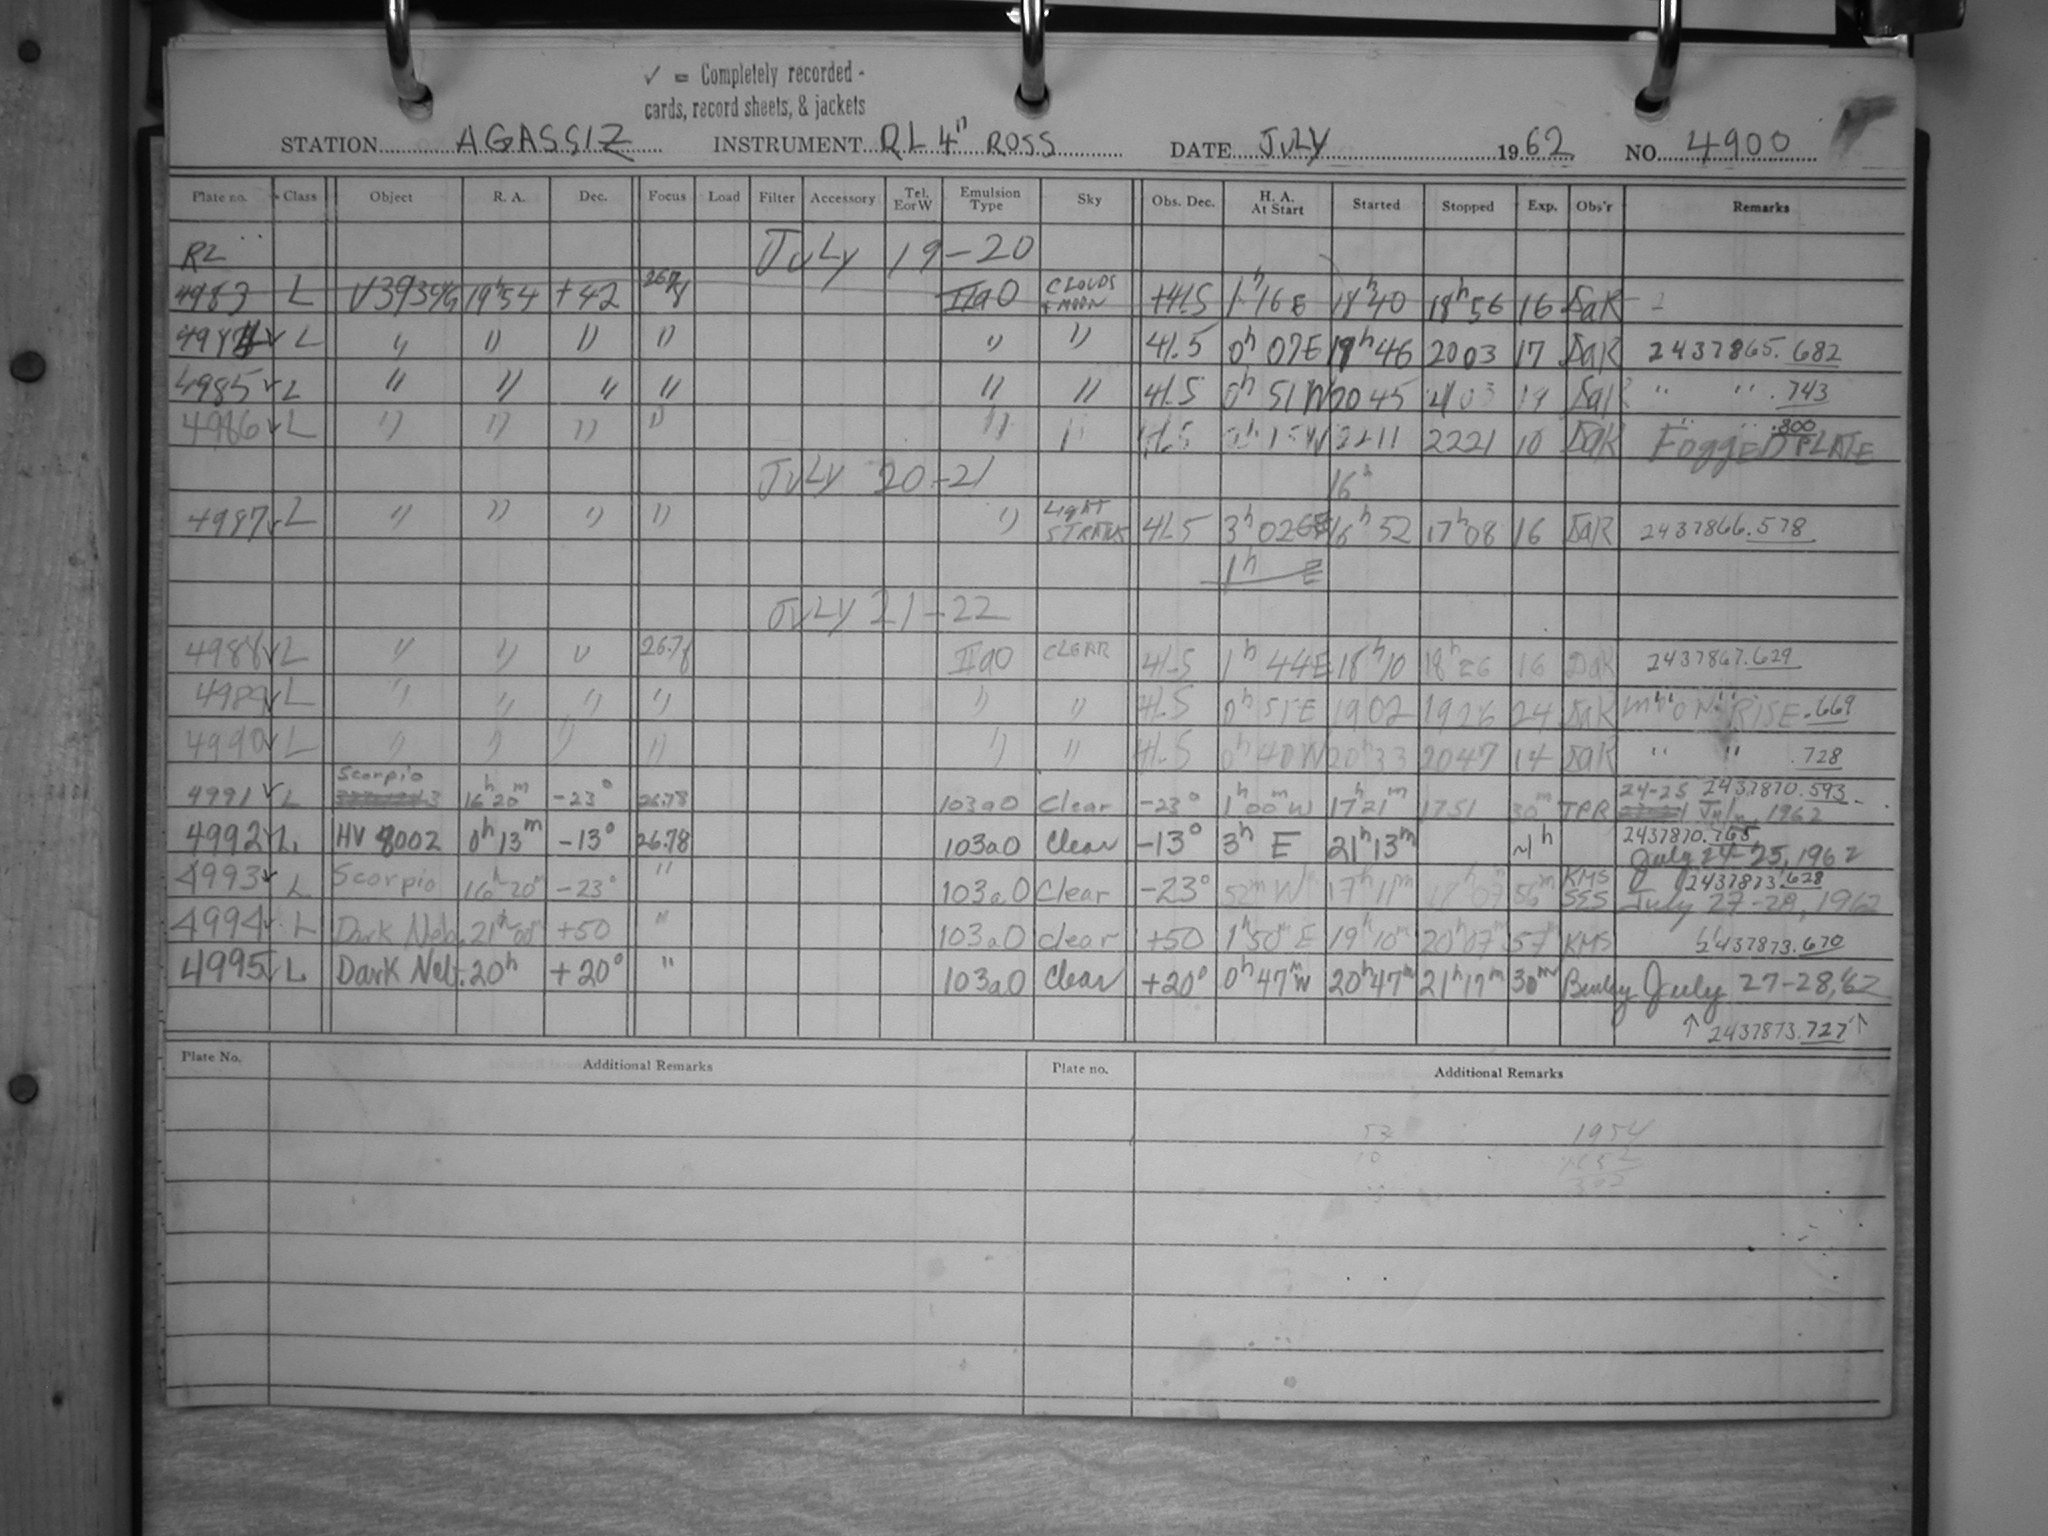 ✓ = Completely recorded -
cards, record sheets, & jackets
STATION AGASSIZ INSTRUMENT RL 4" ROSS DATE JULY 1962 NO. 4900
Plate no. Class Object R. A. Dec. Focus Load Filter Accessory Tel. E or W Emulsion Type Sky Obs. Dec. H. A. At Start Started Stopped Exp. Obs'r Remarks
RL July 19-20
4983 L 19h54 +42 IIaO CLOUDS + MOON +41.5 1h16 E 18h40 18h56 16 DaK
4984 ✓ L " " " " " " 41.5 0h 07E 19h46 2003 17 DaK 2437865.682
4985 ✓ L " " " " " " 41.5 0h 51W 2045 2103 DaK " " .743
4986 ✓ L " " " " " " 41.5 2211 2221 10 DaK " " .800 FoggED PLATE
July 20-21
4987 ✓ L " " " " " LIGHT STREAKS 41.5 3h 02E 16h52 17h08 16 DaK 2437866.578
1h E
July 21-22
4988 ✓ L " " " 26.78 IIaO CLEAR 41.5 1h 44E 18h10 18h26 16 DaK 2437867.629
4989 ✓ L " " " " " " 41.5 0h 51E 1902 1926 24 DaK MOON RISE .669
4990 ✓ L " " " " " " 41.5 0h 40W 2033 2047 14 DaK " " .728
4991 ✓ L Scorpio 16h20m -23° 26.78 103aO Clear -23° 1h00m W 17h21m 1751 30m TPR 24-25 July, 1962 2437870.593
4992 ✓ L HV 8002 0h13m -13° 26.78 103aO Clear -13° 3h E 21h13m ~1h 2437870.765 July 24-25, 1962
4993 ✓ L Scorpio 16h20m -23° " 103aO Clear -23° 52m W 17h11m 18h07m 56m KMS SSS 2437873.628 July 27-28, 1962
4994 ✓ L Dark Neb. 21h00m +50 " 103aO clear +50 1h50m E 19h10m 20h07m 57m KMS 2437873.670
4995 ✓ L Dark Neb. 20h +20° " 103aO Clear +20° 0h47m W 20h47m 21h17m 30m July 27-28, '62
↑ 2437873.727 ↑
Plate No. Additional Remarks Plate no. Additional Remarks
1954